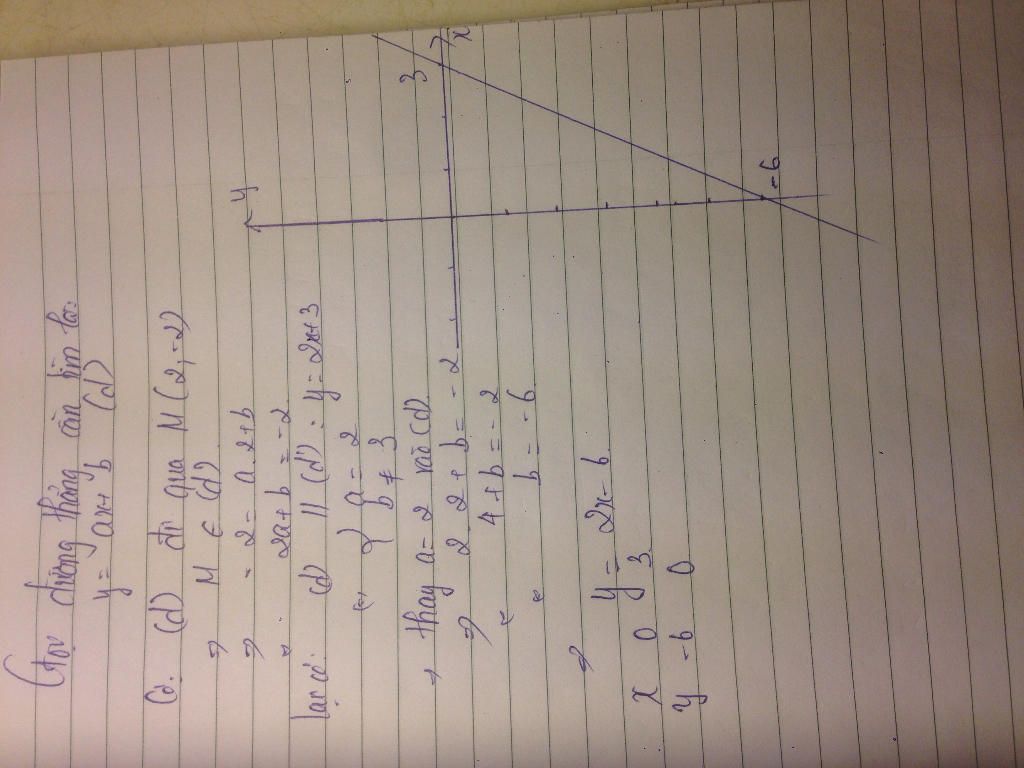 Gọi đường thẳng cần tìm là:
y = ax + b (d)
Có: (d) đi qua M (2, -2)
⇒ M ∈ (d)
⇒ -2 = a.2+b
2a+b = -2
lại có: (d) // (d') : y = 2x+3
{ a = 2
b ≠ 3
→ thay a = 2 vào (d)
⇒ 2.2 + b = -2
4+b = -2
b = -6
⇒ y = 2x - 6
x 0 3
y -6 0
y
3
x
-6